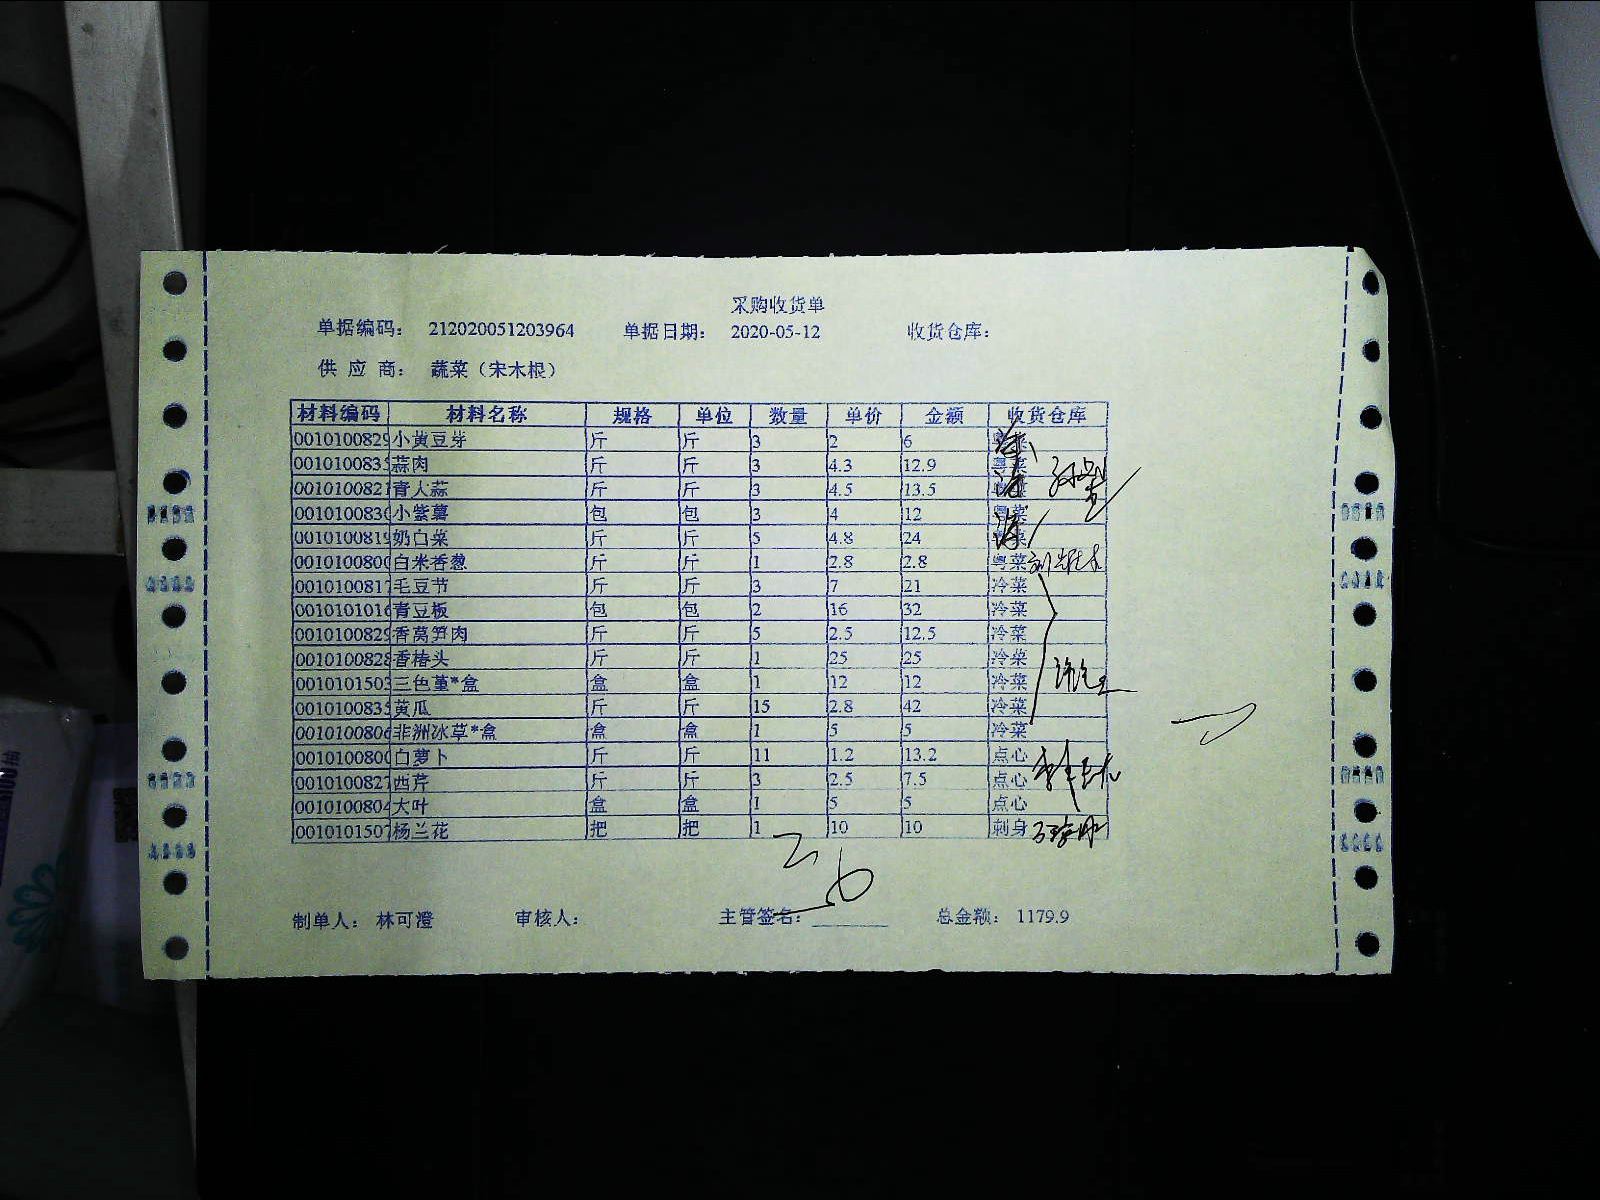 采购收货单
单据编码: 212020051203964 单据日期: 2020-05-12 收货仓库:
供 应 商: 蔬菜（宋木根）
材料编码 材料名称 规格 单位 数量 单价 金额 收货仓库
0010100829 小黄豆芽 斤 斤 3 2 6 粤菜
001010083 蒜肉 斤 斤 3 4.3 12.9 粤菜
001010082 青大蒜 斤 斤 3 4.5 13.5 粤菜
001010083 小紫薯 包 包 3 4 12 粤菜
001010081 奶白菜 斤 斤 5 4.8 24 粤菜
001010080 白米香葱 斤 斤 1 2.8 2.8 粤菜
001010081 毛豆节 斤 斤 3 7 21 冷菜
001010101 青豆板 包 包 2 16 32 冷菜
0010100829 香莴笋肉 斤 斤 5 2.5 12.5 冷菜
0010100828 香椿头 斤 斤 1 25 25 冷菜
0010101503 三色堇*盒 盒 盒 1 12 12 冷菜
001010083 黄瓜 斤 斤 15 2.8 42 冷菜
001010080 非洲冰草*盒 盒 盒 1 5 5 冷菜
001010080 白萝卜 斤 斤 11 1.2 13.2 点心
001010082 西芹 斤 斤 3 2.5 7.5 点心
0010100804 大叶 盒 盒 1 5 5 点心
001010150 杨兰花 把 把 1 10 10 刺身
制单人: 林可澄 审核人: 主管签名: 总金额: 1179.9